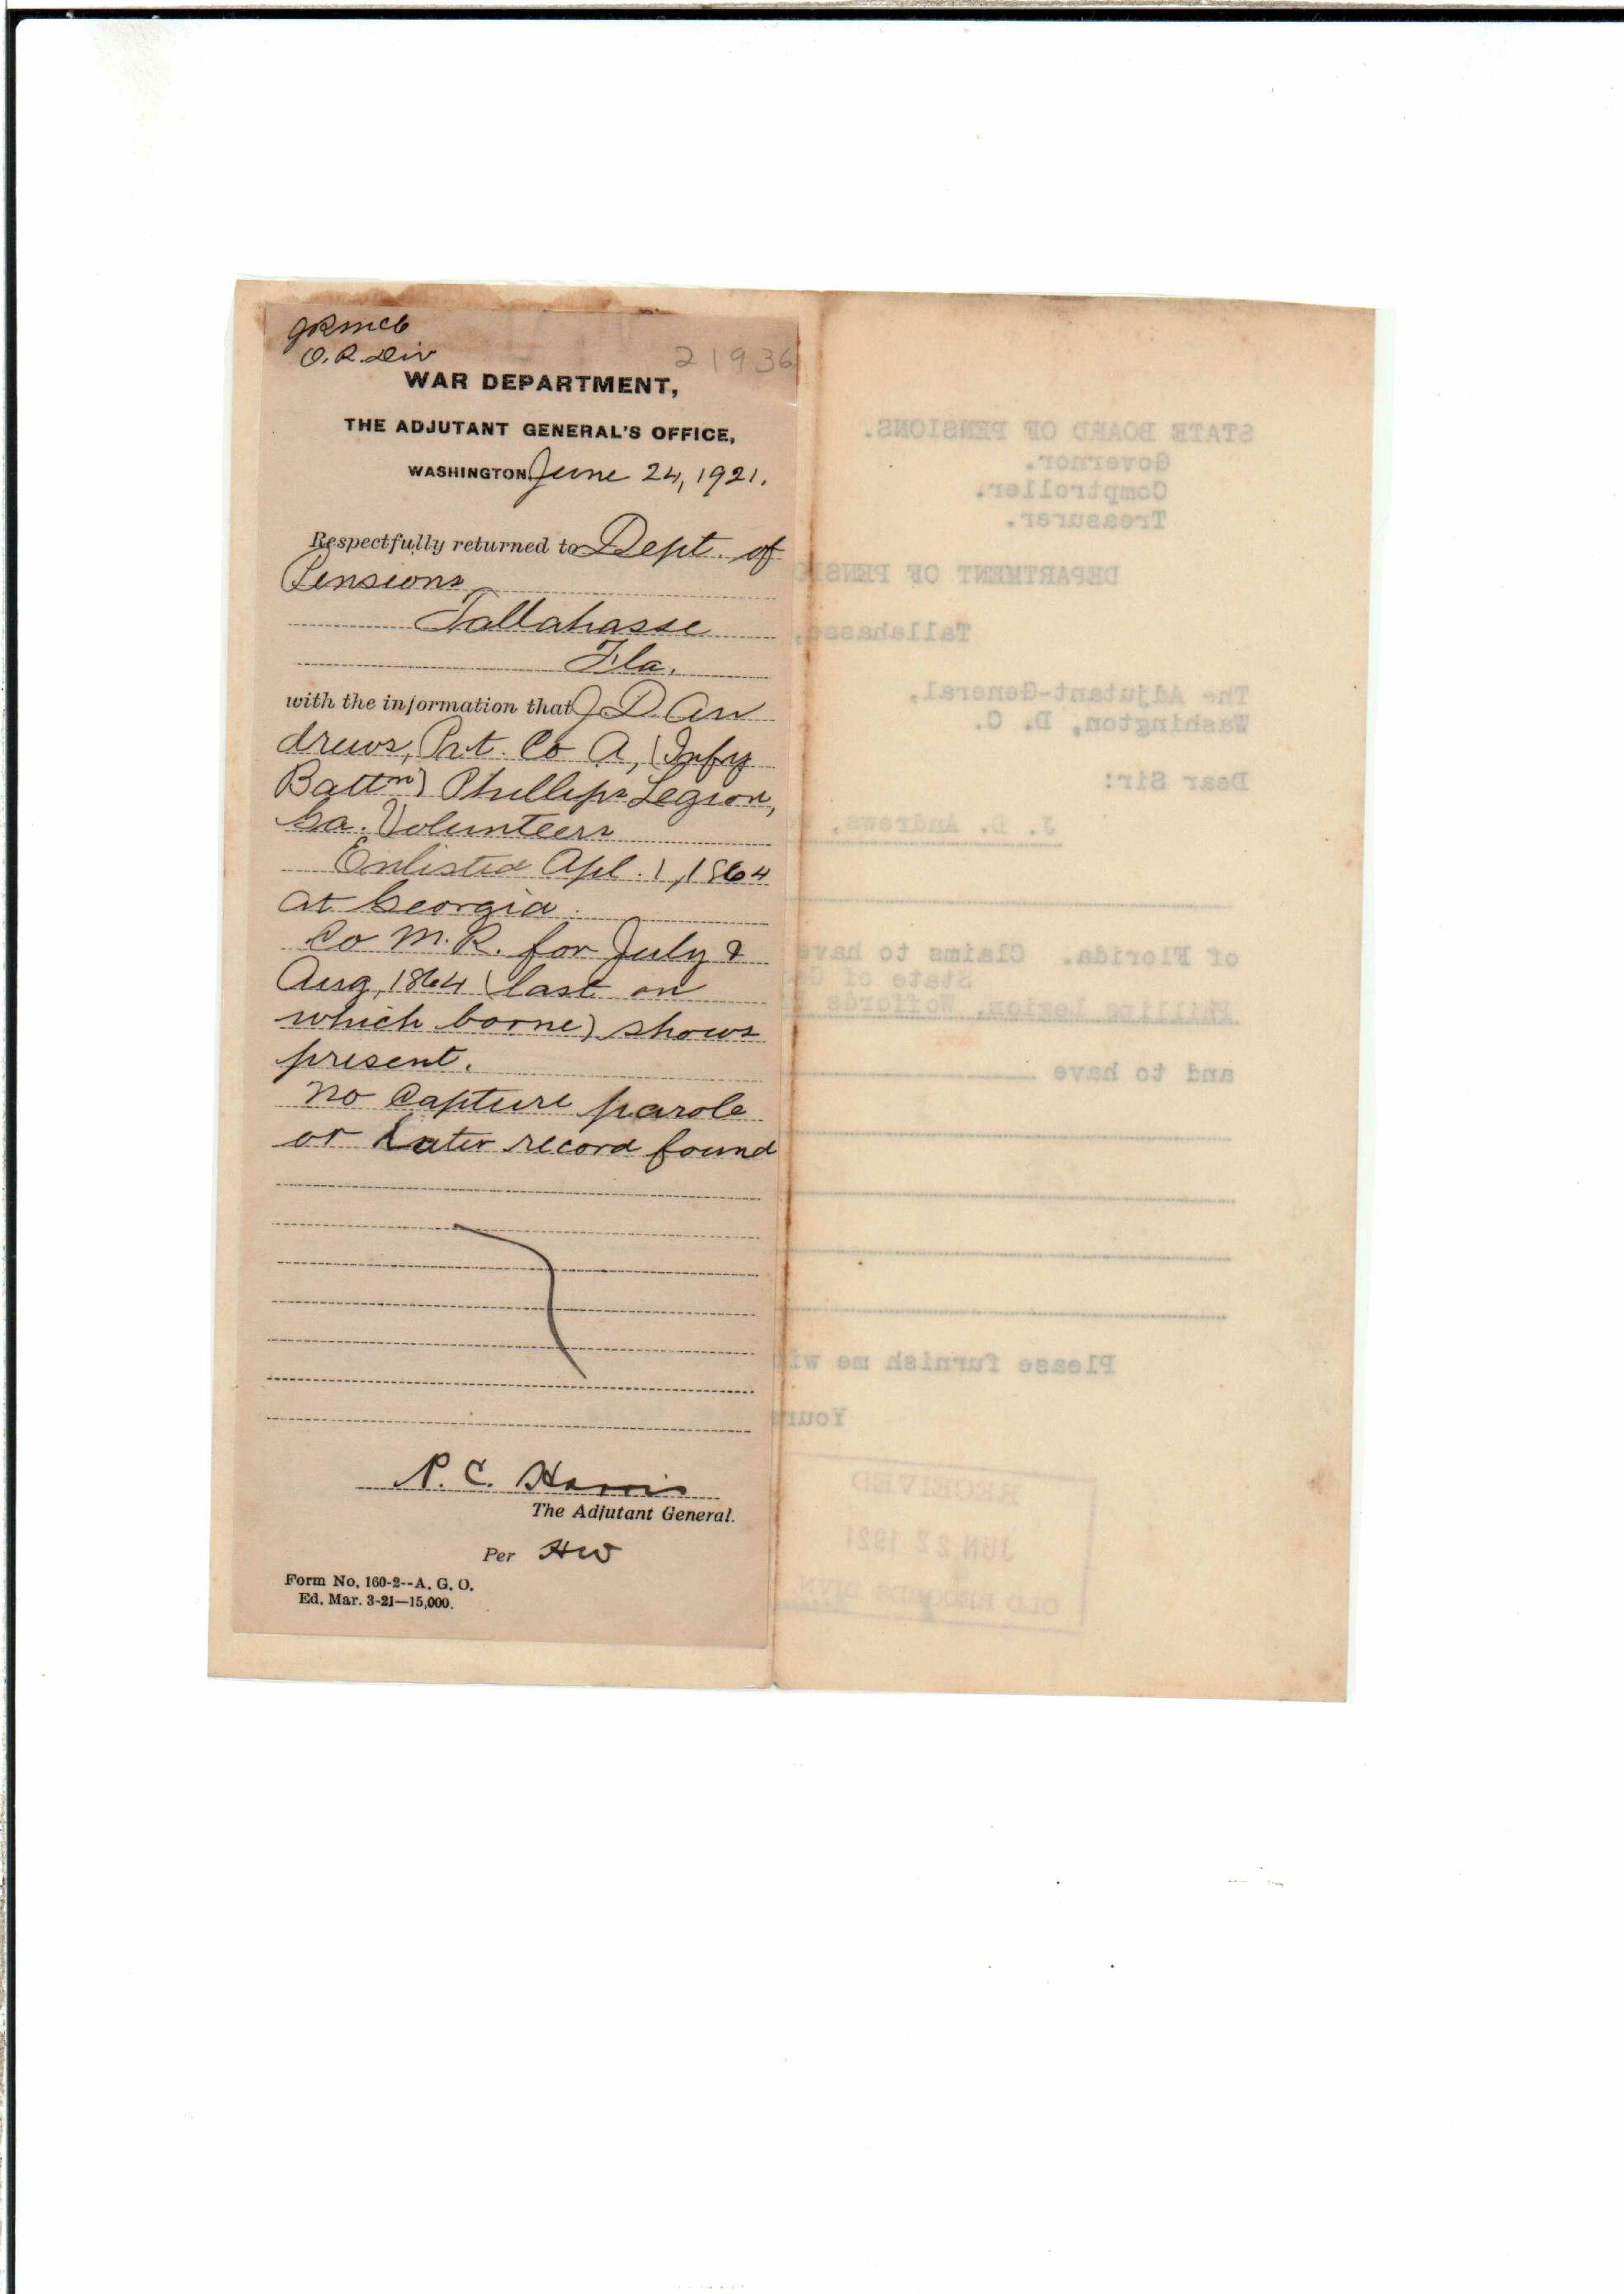 JRMcC
O.R. Div
21936
WAR DEPARTMENT,
THE ADJUTANT GENERAL'S OFFICE,
WASHINGTON, June 24, 1921.
Respectfully returned to Dept. of
Pensions
Tallahasse
Fla.
with the information that J D An
drews, Pvt. Co A, (Infy
Battn) Phillips Legion,
Ga. Volunteers
Enlisted Apl. 1, 1864
at Georgia.
Co M.R. for July &
Aug, 1864 (last on
which borne) shows
present.
No capture parole
or later record found
P. C. Harris
The Adjutant General.
Per HW
Form No. 160-2--A. G. O.
Ed. Mar. 3-21—15,000.
STATE BOARD OF PENSIONS.
Governor.
Comptroller.
Treasurer.
DEPARTMENT OF PENSIO
Tallahassee,
The Adjutant-General,
Washington, D. C.
Dear Sir:
J. D. Andrews,
of Florida. Claims to have
State of G
Phillips Legion, Woffords
and to have
Please furnish me wi
Yours
RECEIVED
JUN 22 1921
OLD RECORDS DIVN